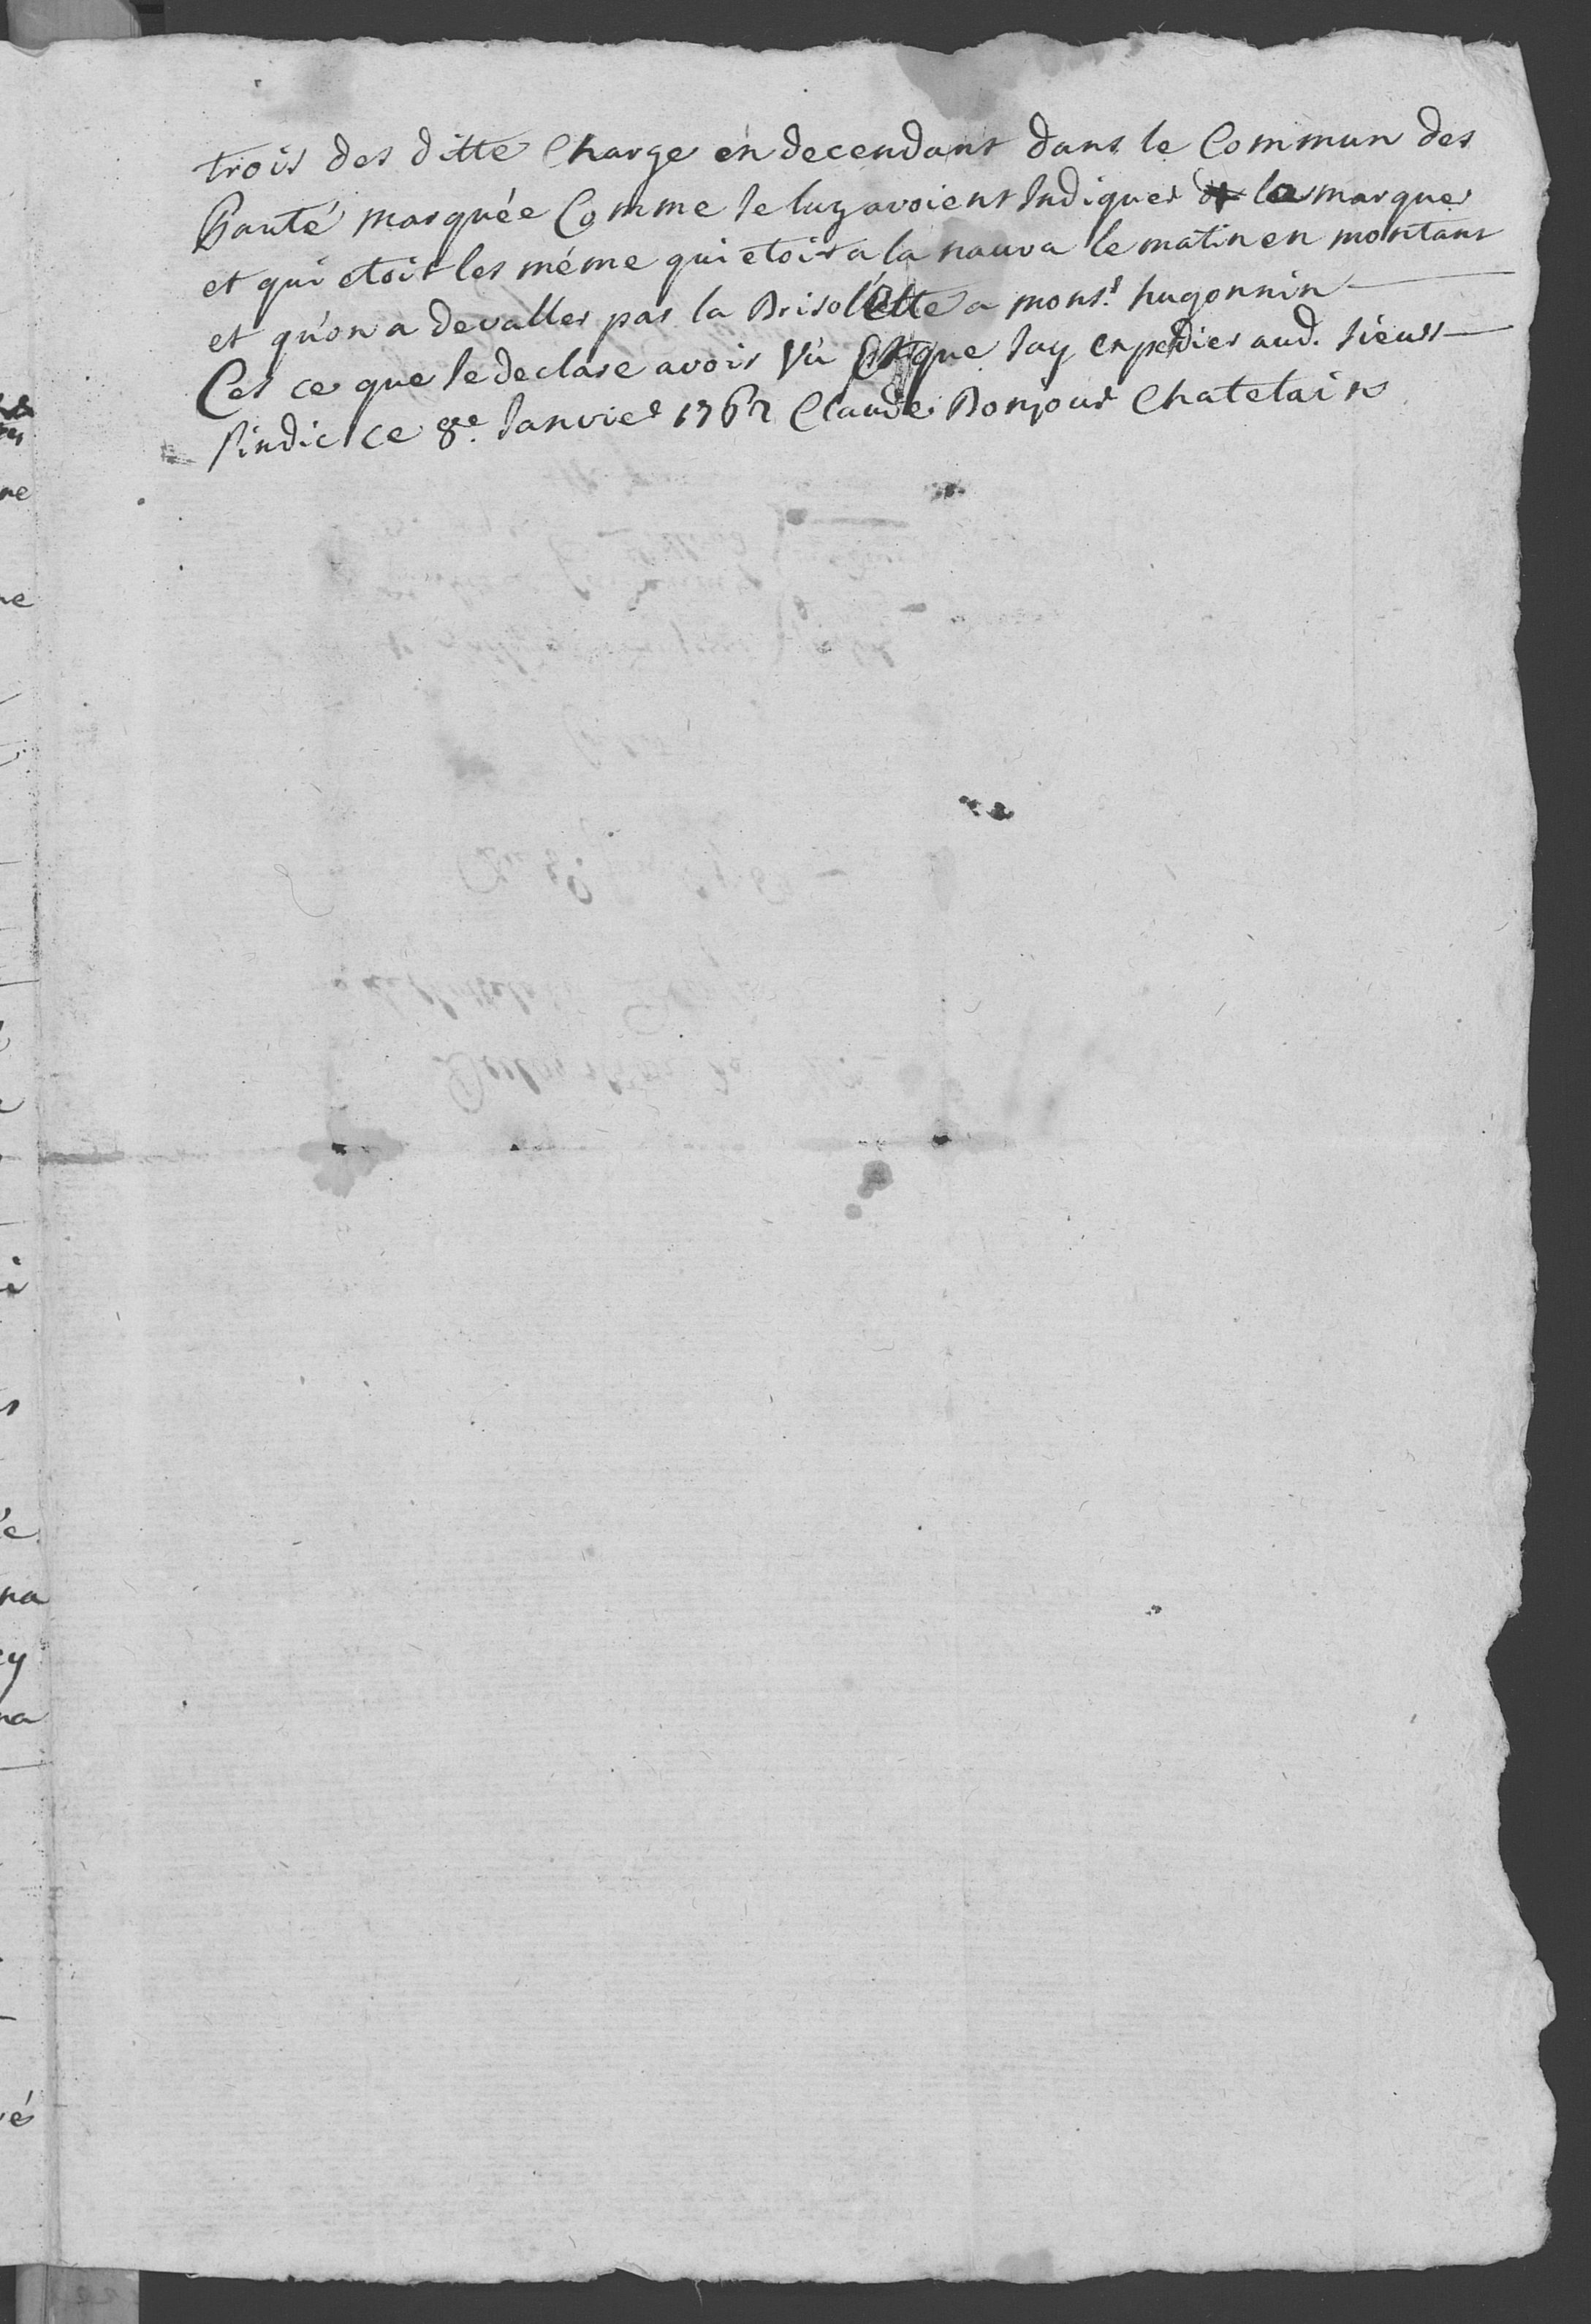 trois des ditte Charge en decendant dans le Commun des
hauté marquée Comme Je luy avoient Indiquer les marques
et qui etoit les même qui etoit a la nauva le matin en montant
et qu'on a devaller par la Brisolette a mons.r hugonnin
Ces ce que Je declare avoir Vû Et que Jay expedier aud. Sieur
Sindic ce 8.e Janvier 1762 Claude Bonjour Chatelain